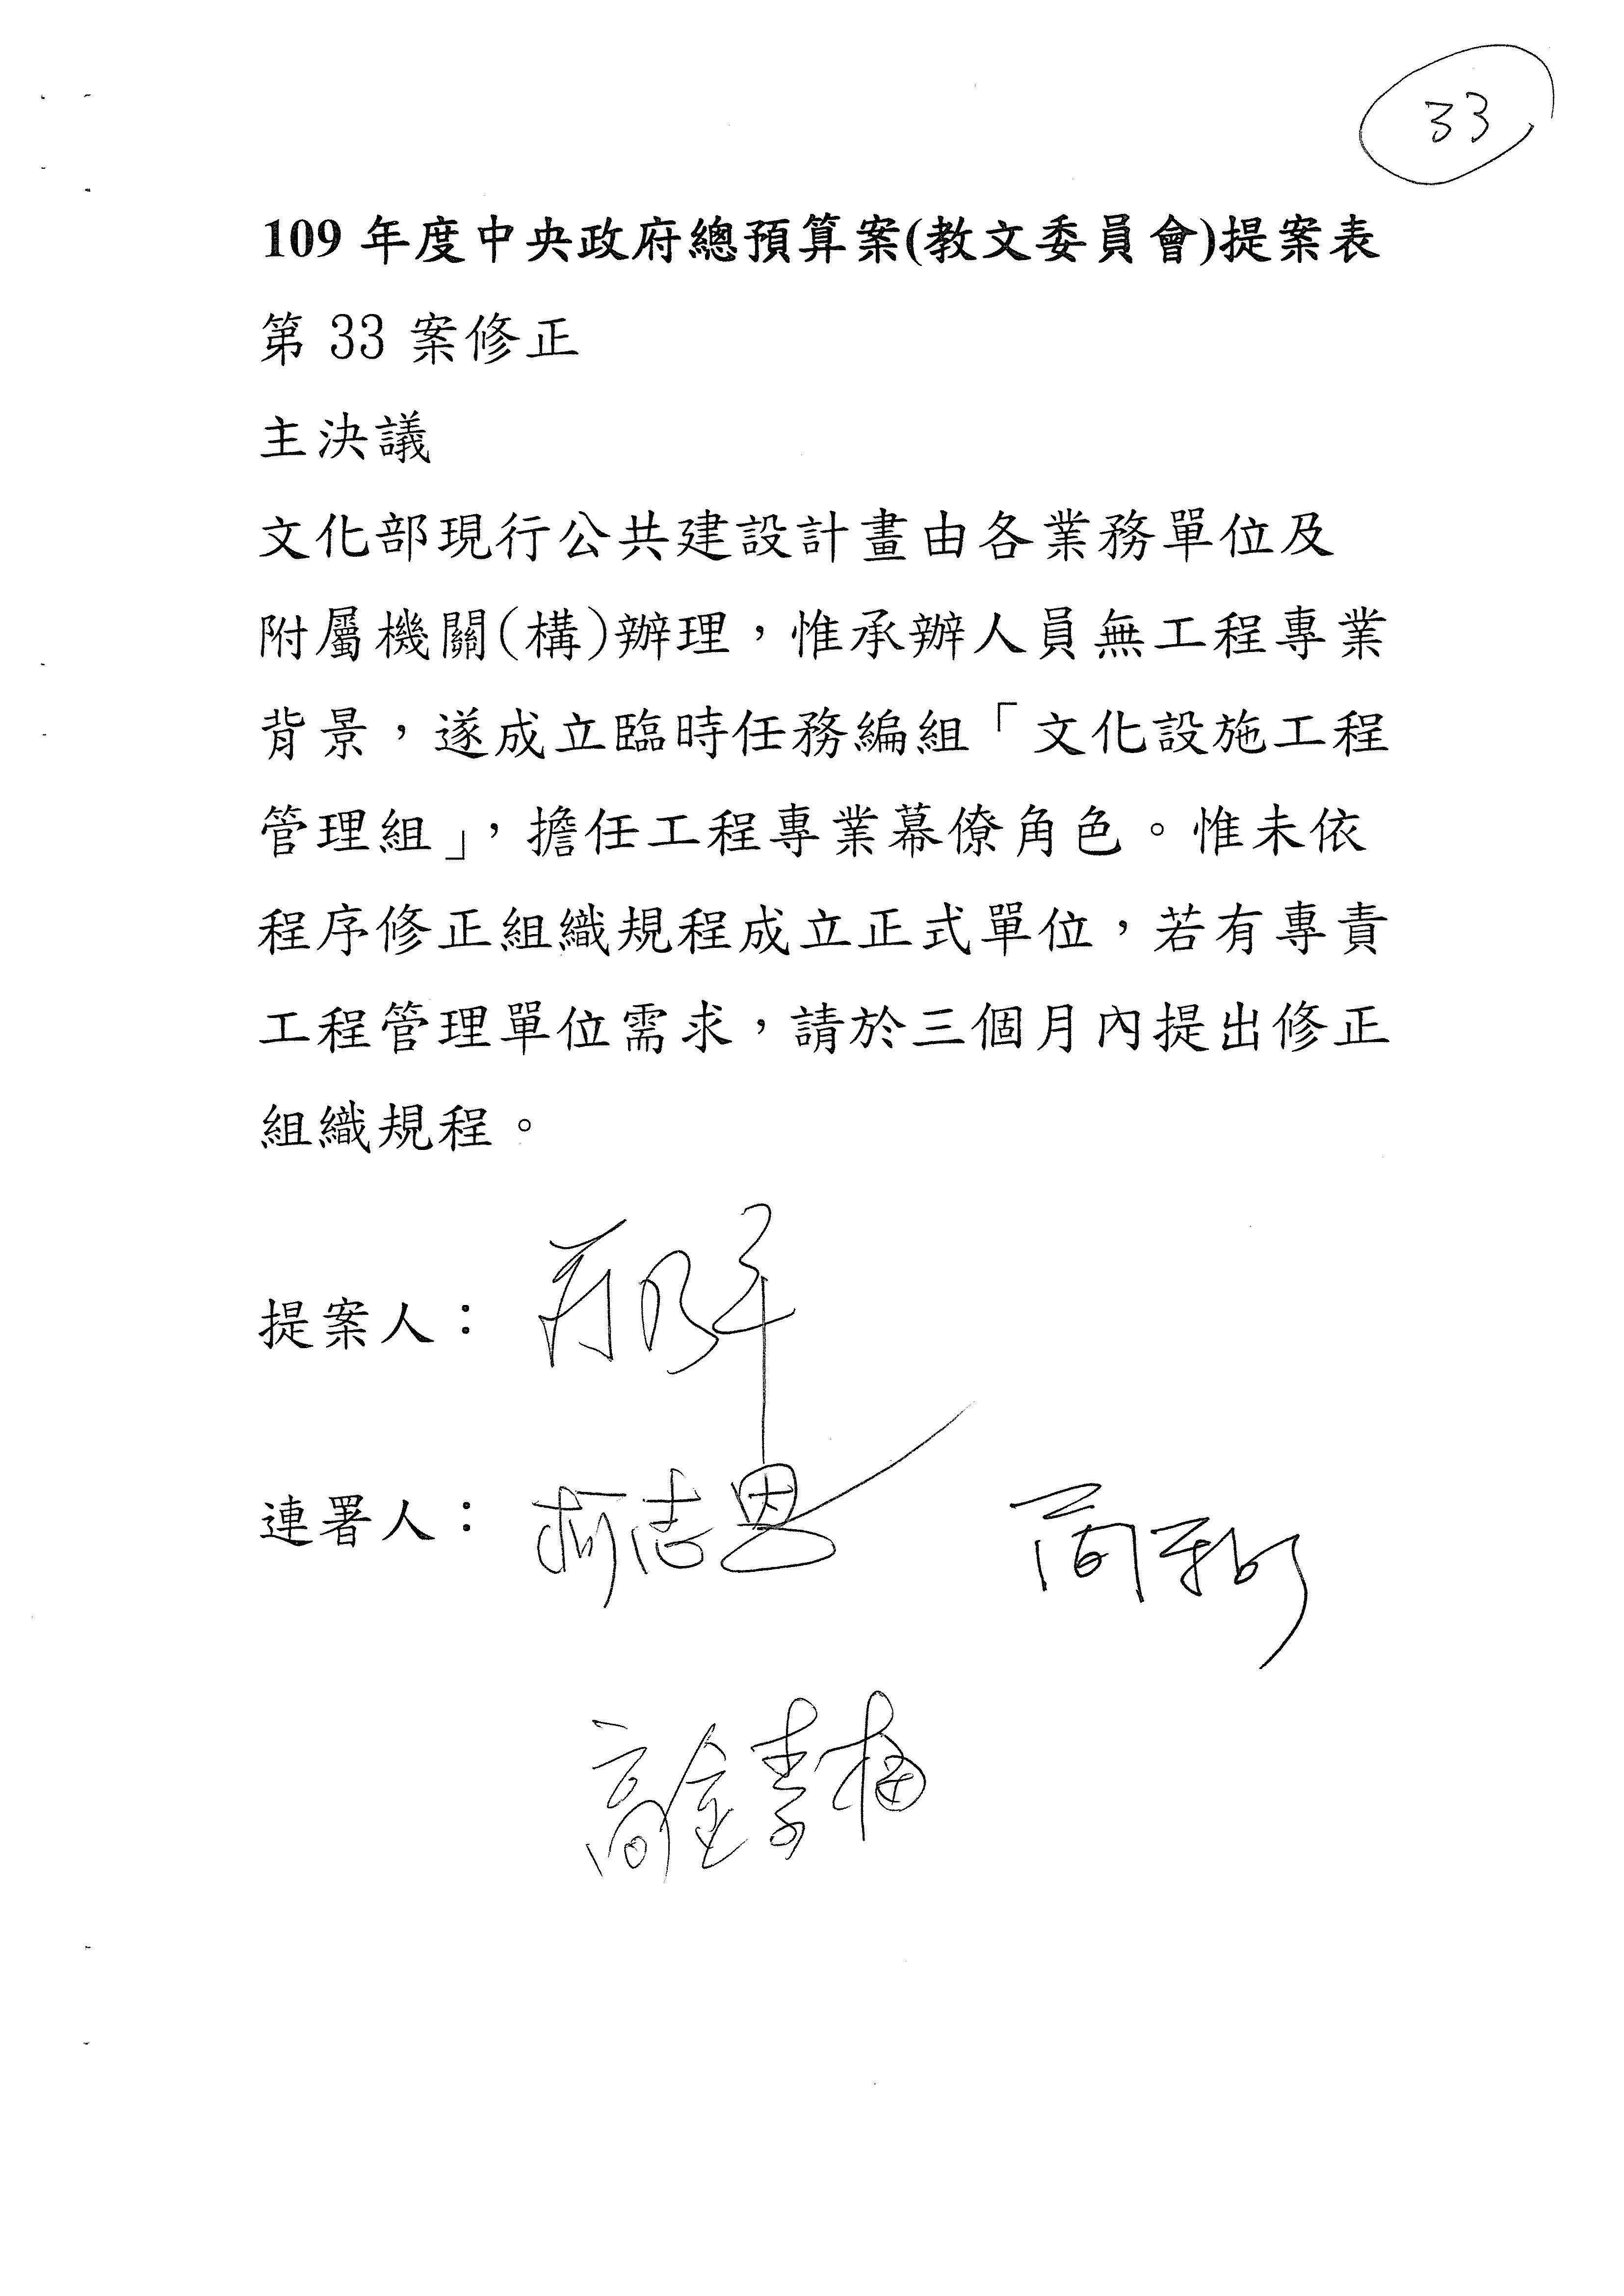 33
109 年度中央政府總預算案(教文委員會)提案表
第 33 案修正
主決議
文化部現行公共建設計畫由各業務單位及
附屬機關(構)辦理，惟承辦人員無工程專業
背景，遂成立臨時任務編組「文化設施工程
管理組」，擔任工程專業幕僚角色。惟未依
程序修正組織規程成立正式單位，若有專責
工程管理單位需求，請於三個月內提出修正
組織規程。
提案人：
連署人：柯志恩
高金素梅